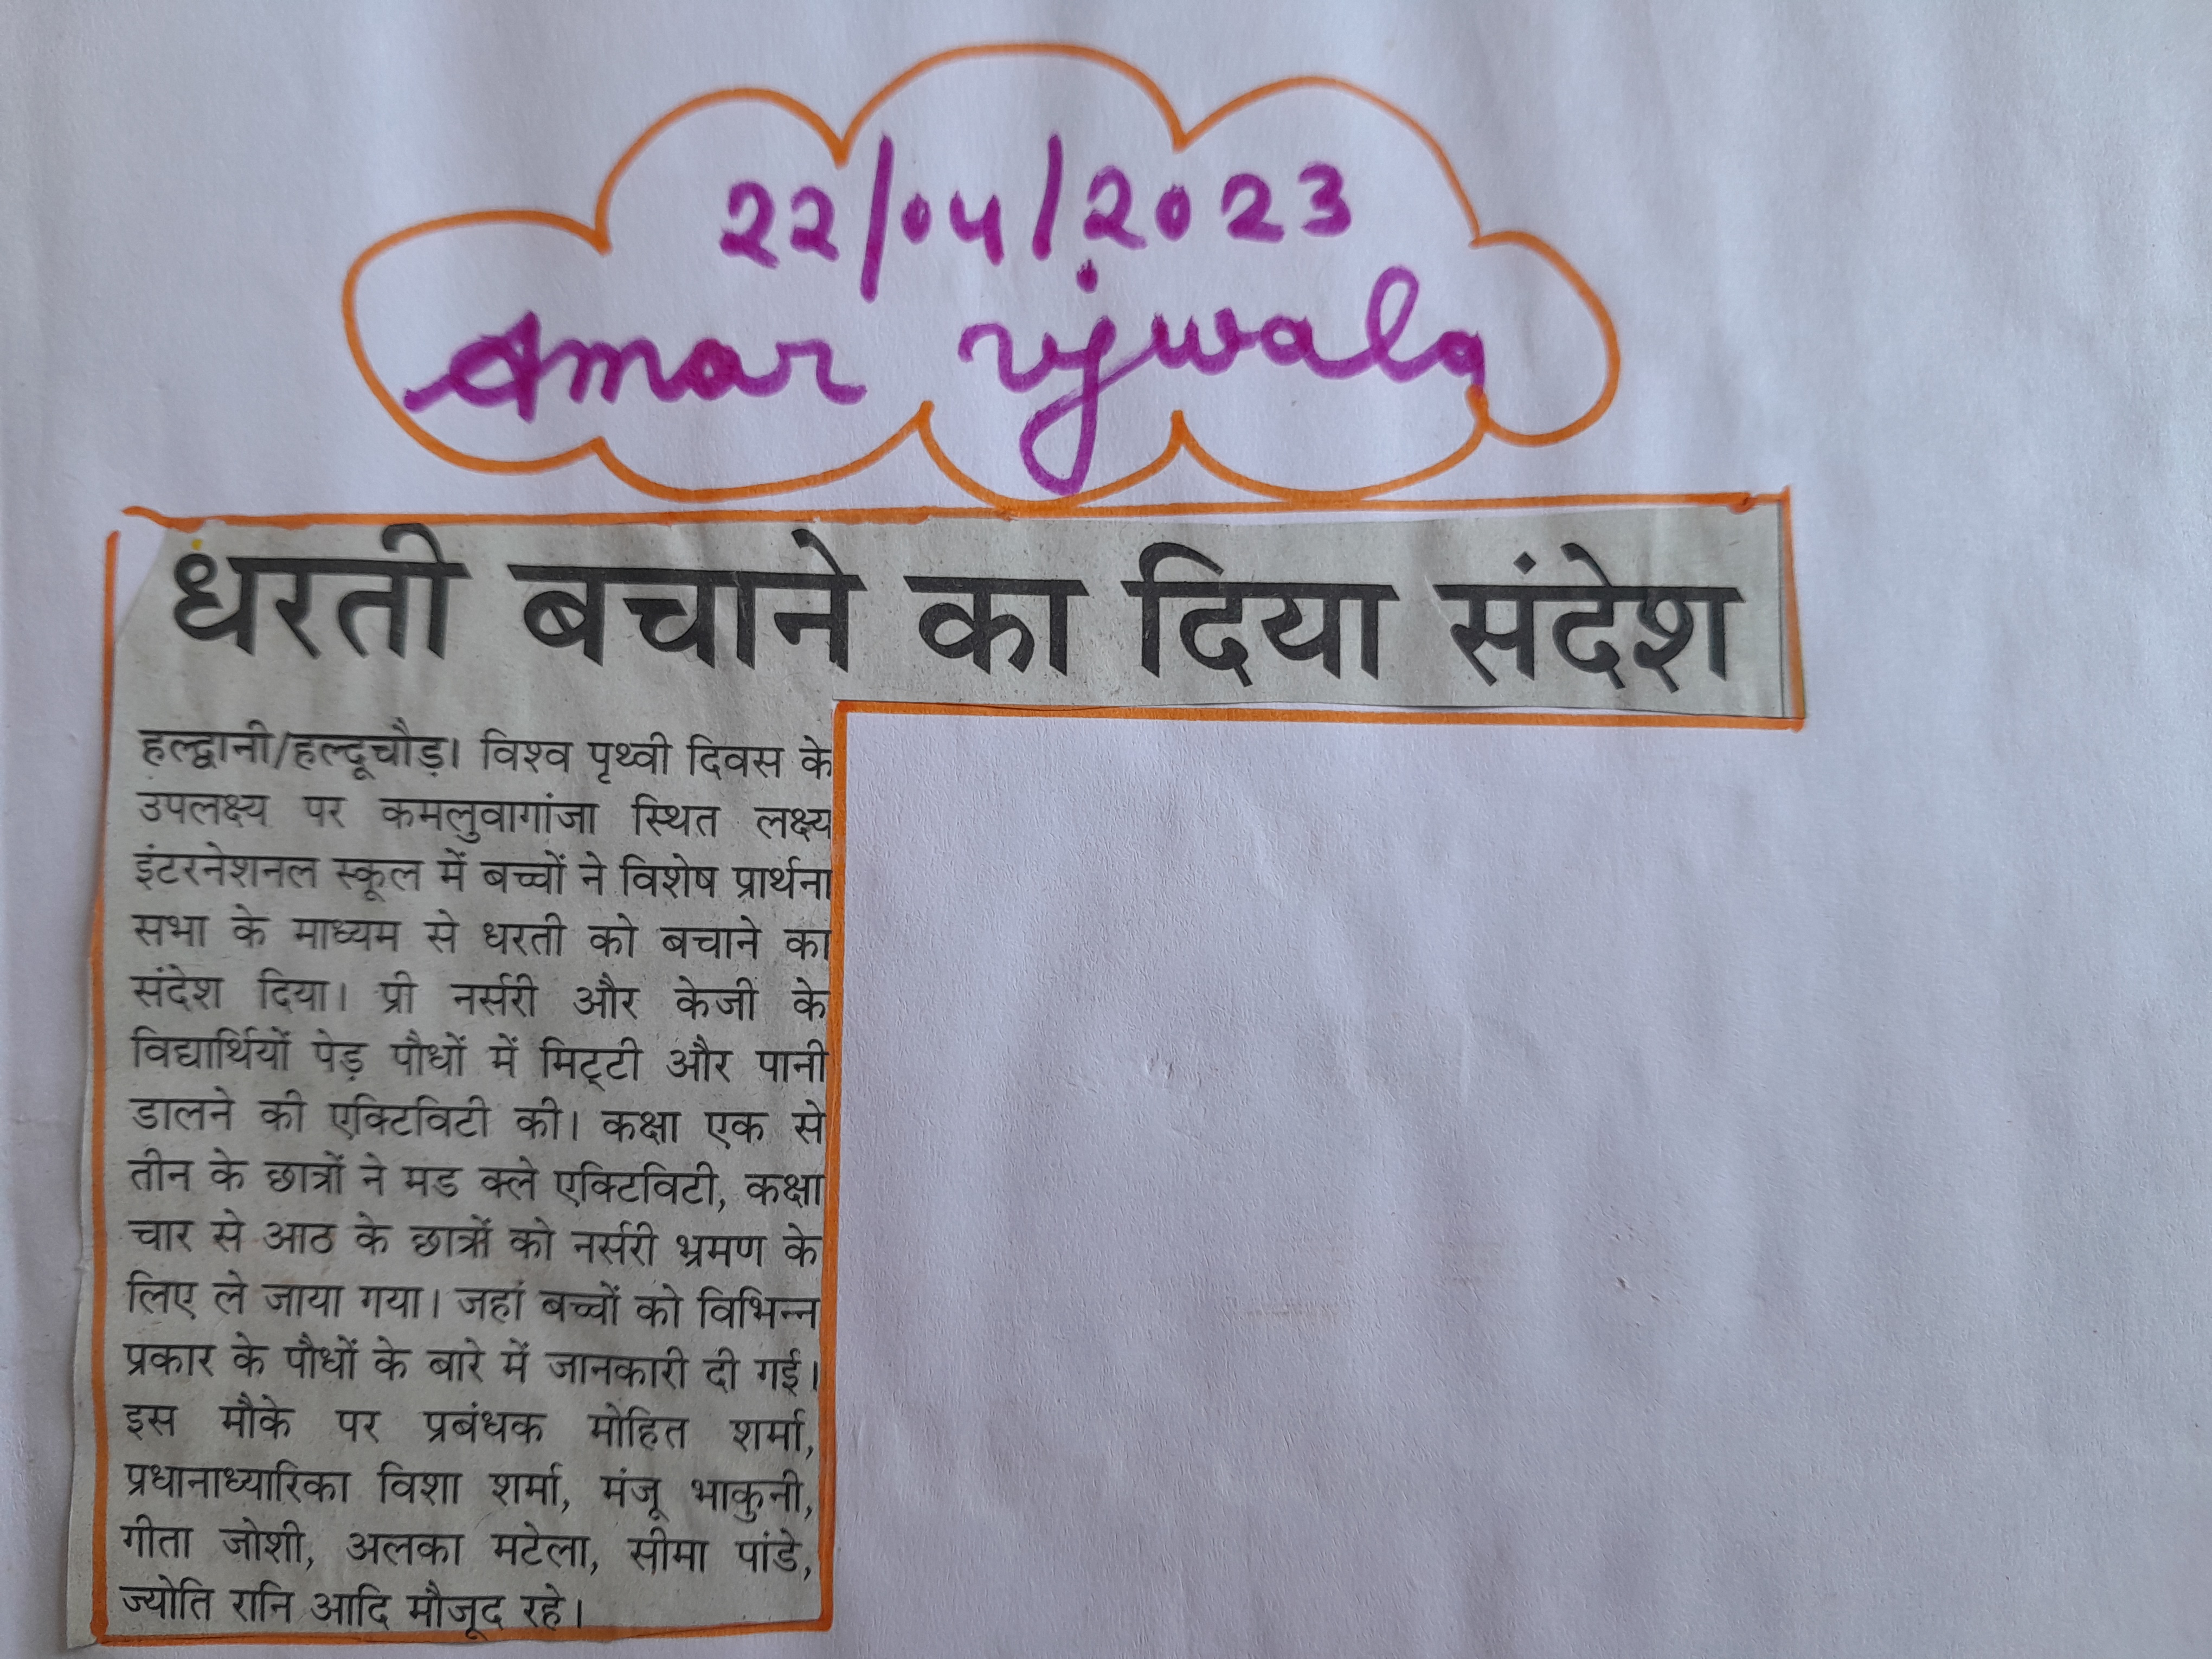 22/04/2023
Amar ujwala
धरती बचाने का दिया संदेश
हल्द्वानी/हल्दूचौड़। विश्व पृथ्वी दिवस के
उपलक्ष्य पर कमलुवागांजा स्थित लक्ष्य
इंटरनेशनल स्कूल में बच्चों ने विशेष प्रार्थना
सभा के माध्यम से धरती को बचाने का
संदेश दिया। प्री नर्सरी और केजी के
विद्यार्थियों पेड़ पौधों में मिट्टी और पानी
डालने की एक्टिविटी की। कक्षा एक से
तीन के छात्रों ने मड क्ले एक्टिविटी, कक्षा
चार से आठ के छात्रों को नर्सरी भ्रमण के
लिए ले जाया गया। जहां बच्चों को विभिन्न
प्रकार के पौधों के बारे में जानकारी दी गई।
इस मौके पर प्रबंधक मोहित शर्मा,
प्रधानाध्यारिका विशा शर्मा, मंजू भाकुनी,
गीता जोशी, अलका मटेला, सीमा पांडे,
ज्योति रानि आदि मौजूद रहे।